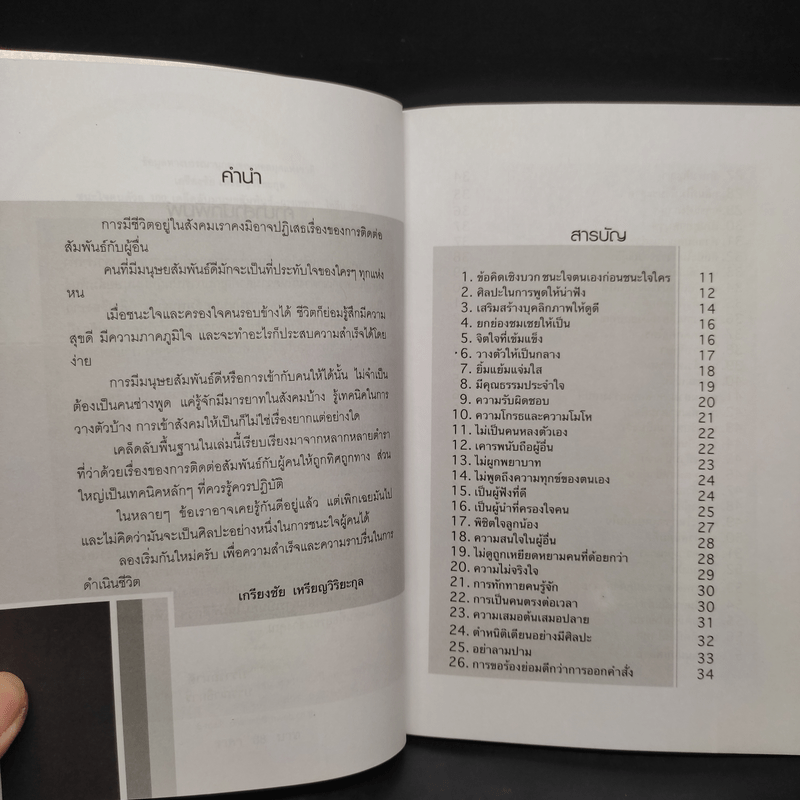 คำนำ
การมีชีวิตอยู่ในสังคมเราคงมิอาจปฏิเสธเรื่องของการติดต่อ
สัมพันธ์กับผู้อื่น
คนที่มีมนุษยสัมพันธ์ดีมักจะเป็นที่ประทับใจของใครๆ ทุกแห่ง
หน
เมื่อชนะใจและครองใจคนรอบข้างได้ ชีวิตก็ย่อมรู้สึกมีความ
สุขดี มีความภาคภูมิใจ และจะทำอะไรก็ประสบความสำเร็จได้โดย
ง่าย
การมีมนุษยสัมพันธ์ดีหรือการเข้ากับคนให้ได้นั้น ไม่จำเป็น
ต้องเป็นคนช่างพูด แค่รู้จักมีมารยาทในสังคมบ้าง รู้เทคนิคในการ
วางตัวบ้าง การเข้าสังคมให้เป็นก็ไม่ใช่เรื่องยากแต่อย่างใด
เคล็ดลับพื้นฐานในเล่มนี้เรียบเรียงมาจากหลากหลายตำรา
ที่ว่าด้วยเรื่องของการติดต่อสัมพันธ์กับผู้คนให้ถูกทิศถูกทาง ส่วน
ใหญ่เป็นเทคนิคหลักๆ ที่ควรรู้ควรปฏิบัติ
ในหลายๆ ข้อเราอาจเคยรู้กันดีอยู่แล้ว แต่เพิกเฉยมันไป
และไม่คิดว่ามันจะเป็นศิลปะอย่างหนึ่งในการชนะใจผู้คนได้
ลองเริ่มกันใหม่ครับ เพื่อความสำเร็จและความราบรื่นในการ
ดำเนินชีวิต
เกรียงชัย เหรียญวิริยะกุล
สารบัญ
1. ข้อคิดเชิงบวก ชนะใจตนเองก่อนชนะใจใคร 11
2. ศิลปะในการพูดให้น่าฟัง 12
3. เสริมสร้างบุคลิกภาพให้ดูดี 14
4. ยกย่องชมเชยให้เป็น 16
5. จิตใจที่เข้มแข็ง 16
6. วางตัวให้เป็นกลาง 17
7. ยิ้มแย้มแจ่มใส 18
8. มีคุณธรรมประจำใจ 19
9. ความรับผิดชอบ 20
10. ความโกรธและความโมโห 21
11. ไม่เป็นคนหลงตัวเอง 22
12. เคารพนับถือผู้อื่น 22
13. ไม่ผูกพยาบาท 23
14. ไม่พูดถึงความทุกข์ของตนเอง 24
15. เป็นผู้ฟังที่ดี 24
16. เป็นผู้นำที่ครองใจคน 25
17. พิชิตใจลูกน้อง 27
18. ความสนใจในผู้อื่น 28
19. ไม่ดูถูกเหยียดหยามคนที่ด้อยกว่า 28
20. ความไม่จริงใจ 29
21. การทักทายคนรู้จัก 30
22. การเป็นคนตรงต่อเวลา 30
23. ความเสมอต้นเสมอปลาย 31
24. ตำหนิติเตียนอย่างมีศิลปะ 32
25. อย่าลามปาม 33
26. การขอร้องย่อมดีกว่าการออกคำสั่ง 34